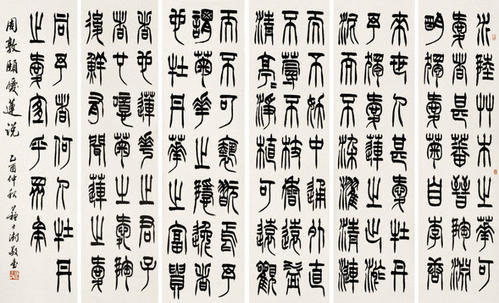 水陸草木之華可
愛者甚蕃晉陶淵
明獨愛菊自李唐
來世人甚愛牡丹
予獨愛蓮之出淤
泥而不染濯清漣
而不妖中通外直
不蔓不枝香遠益
清亭=淨植可遠觀
而不可褻玩焉予
謂菊華之隱逸者
也牡丹華之富貴
者也蓮華之君子
者也噫菊之愛陶
後鮮有聞蓮之愛
同予者何人牡丹
之愛宜乎眾矣
周敦頤愛蓮說 乙酉仲秋